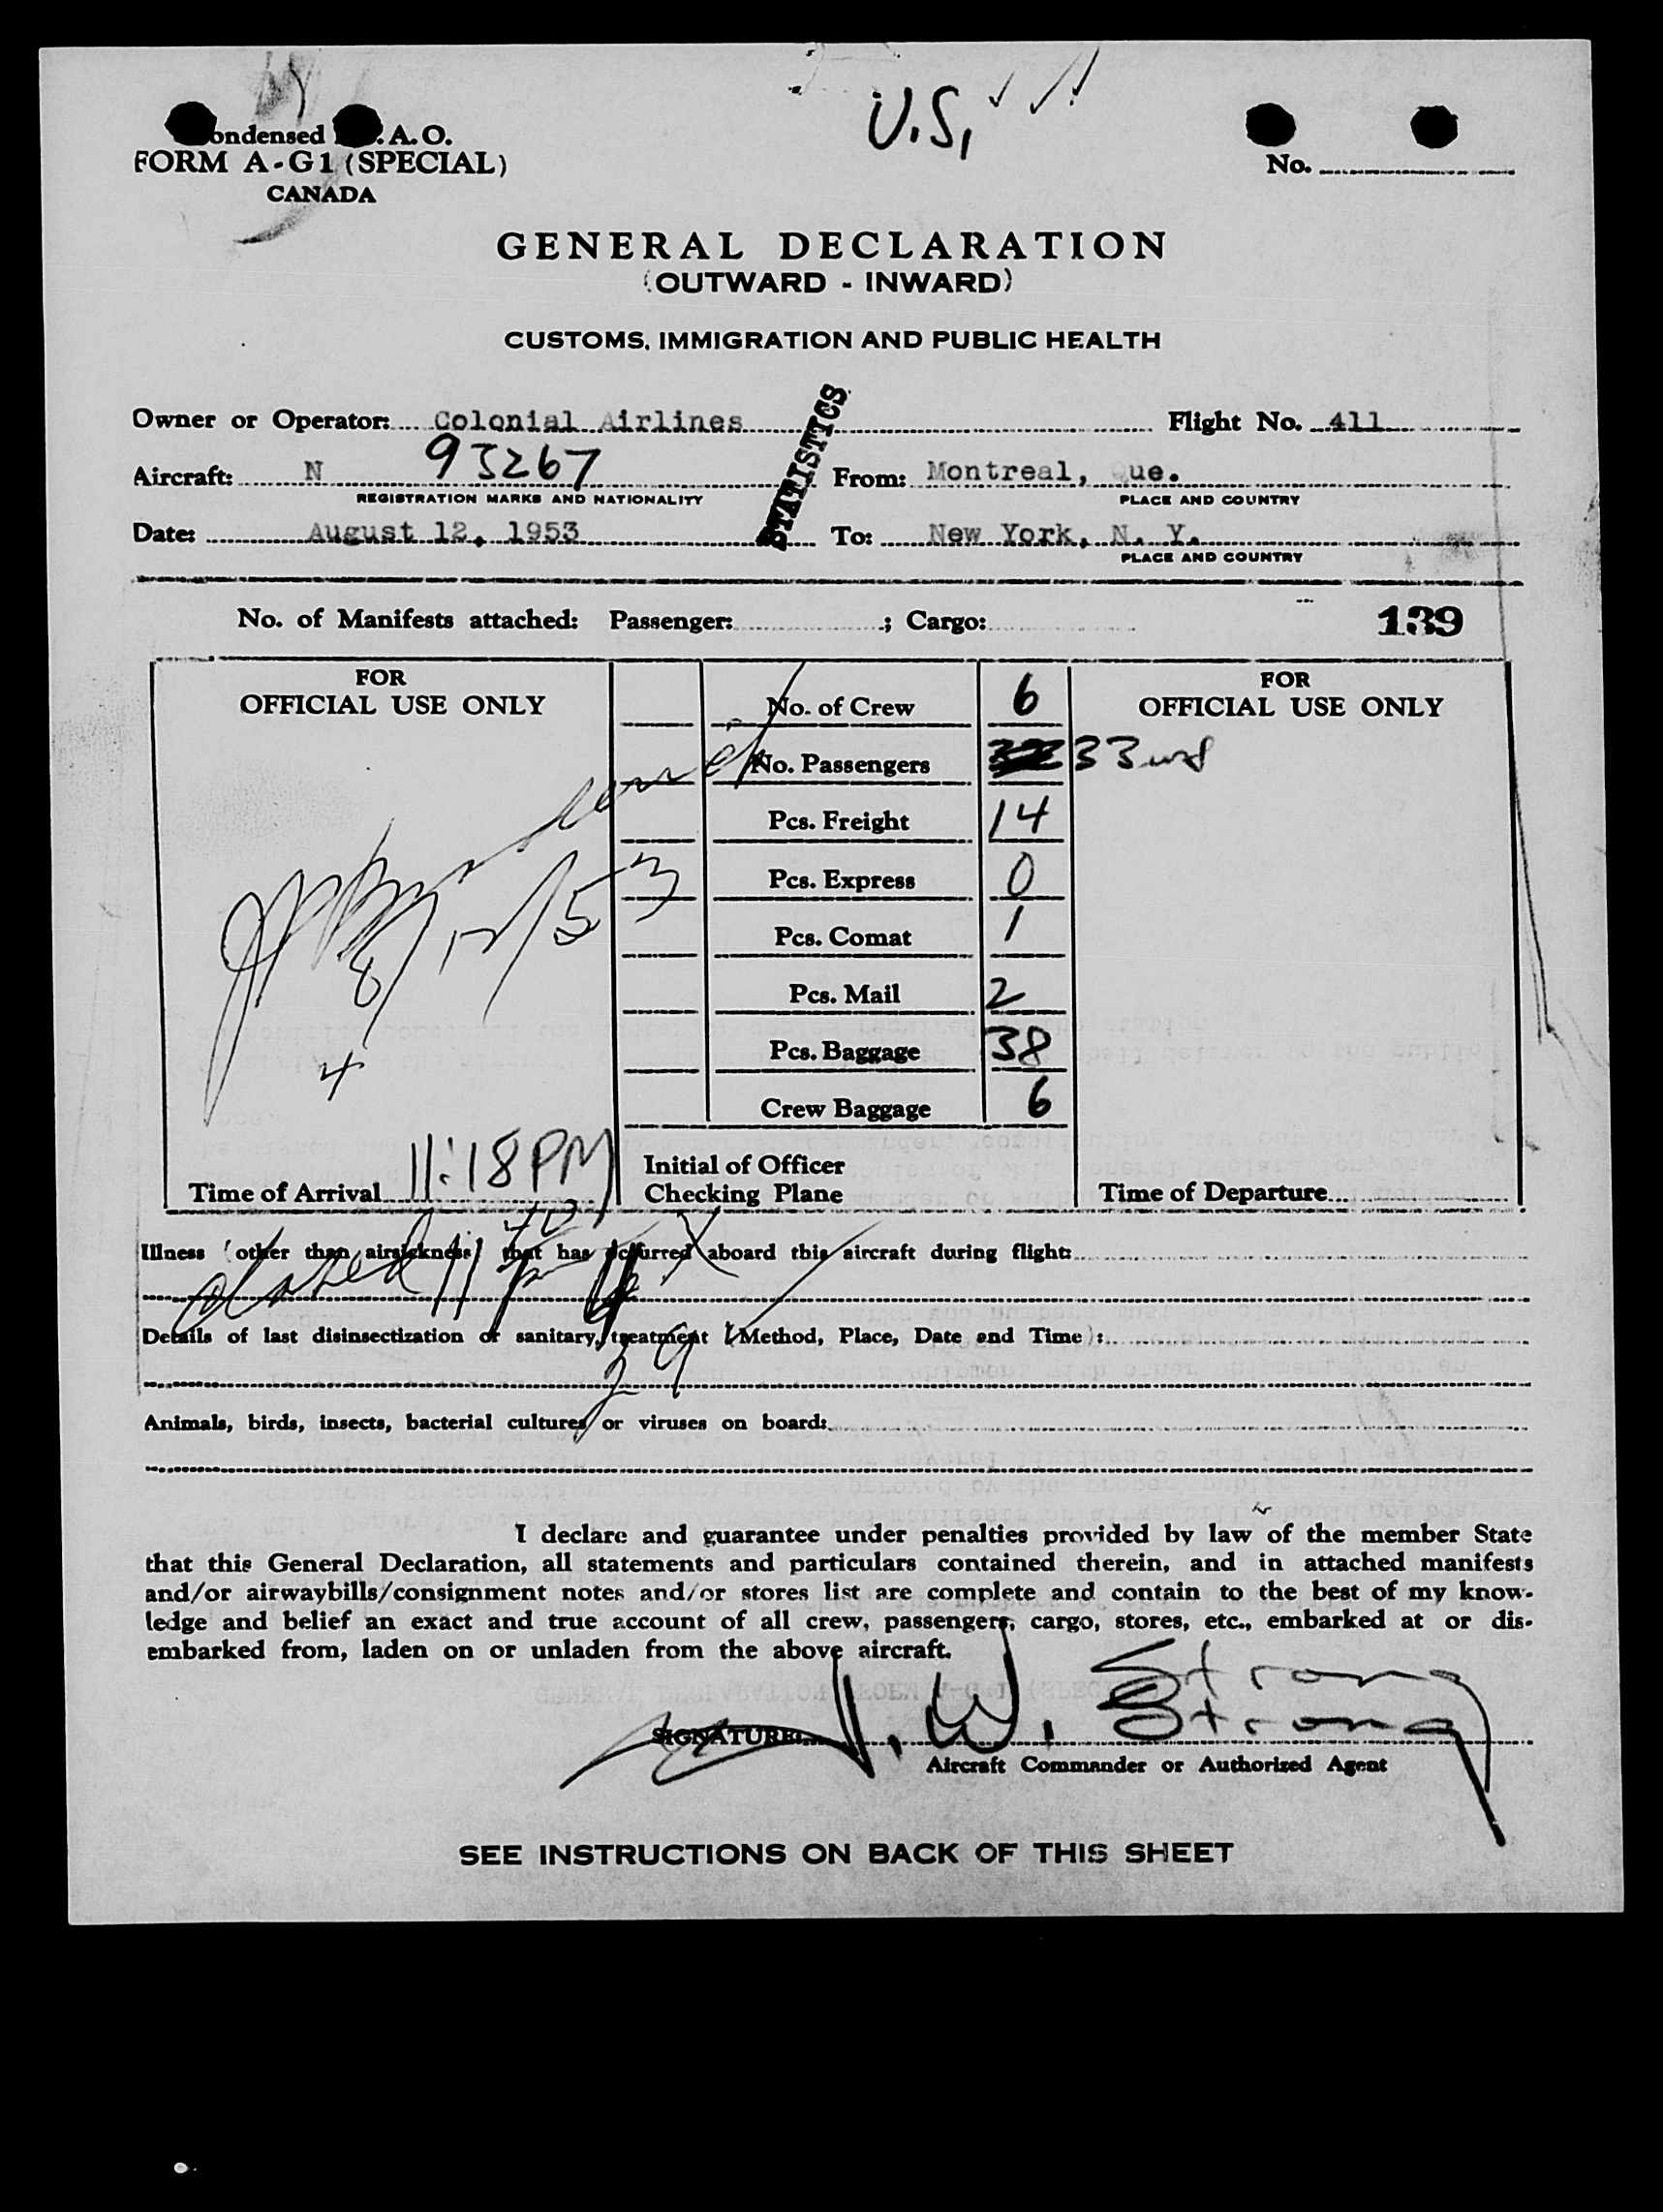 U.S.
ondensed .A.O.
FORM A-G1 (SPECIAL)
CANADA
No.
GENERAL DECLARATION
(OUTWARD - INWARD)
CUSTOMS, IMMIGRATION AND PUBLIC HEALTH
STATISTICS
Owner or Operator: Colonial Airlines Flight No. 411
Aircraft: N 93267 From: Montreal, ue.
REGISTRATION MARKS AND NATIONALITY PLACE AND COUNTRY
Date: August 12, 1953 To: New York, N. Y.
PLACE AND COUNTRY
No. of Manifests attached: Passenger: ; Cargo: 139
FOR
OFFICIAL USE ONLY
No. of Crew 6
No. Passengers 33
Pcs. Freight 14
Pcs. Express 0
Pcs. Comat 1
Pcs. Mail 2
Pcs. Baggage 38
Crew Baggage 6
FOR
OFFICIAL USE ONLY
8/12/53
4
Time of Arrival 11:18 PM
Initial of Officer
Checking Plane
Time of Departure
Illness (other than airsickness) that has occurred aboard this aircraft during flight:
Details of last disinsectization or sanitary treatment (Method, Place, Date and Time):
Animals, birds, insects, bacterial cultures or viruses on board:
I declare and guarantee under penalties provided by law of the member State
that this General Declaration, all statements and particulars contained therein, and in attached manifests
and/or airwaybills/consignment notes and/or stores list are complete and contain to the best of my know-
ledge and belief an exact and true account of all crew, passengers, cargo, stores, etc., embarked at or dis-
embarked from, laden on or unladen from the above aircraft.
SIGNATURE: W. Strong
Strong
Aircraft Commander or Authorized Agent
SEE INSTRUCTIONS ON BACK OF THIS SHEET